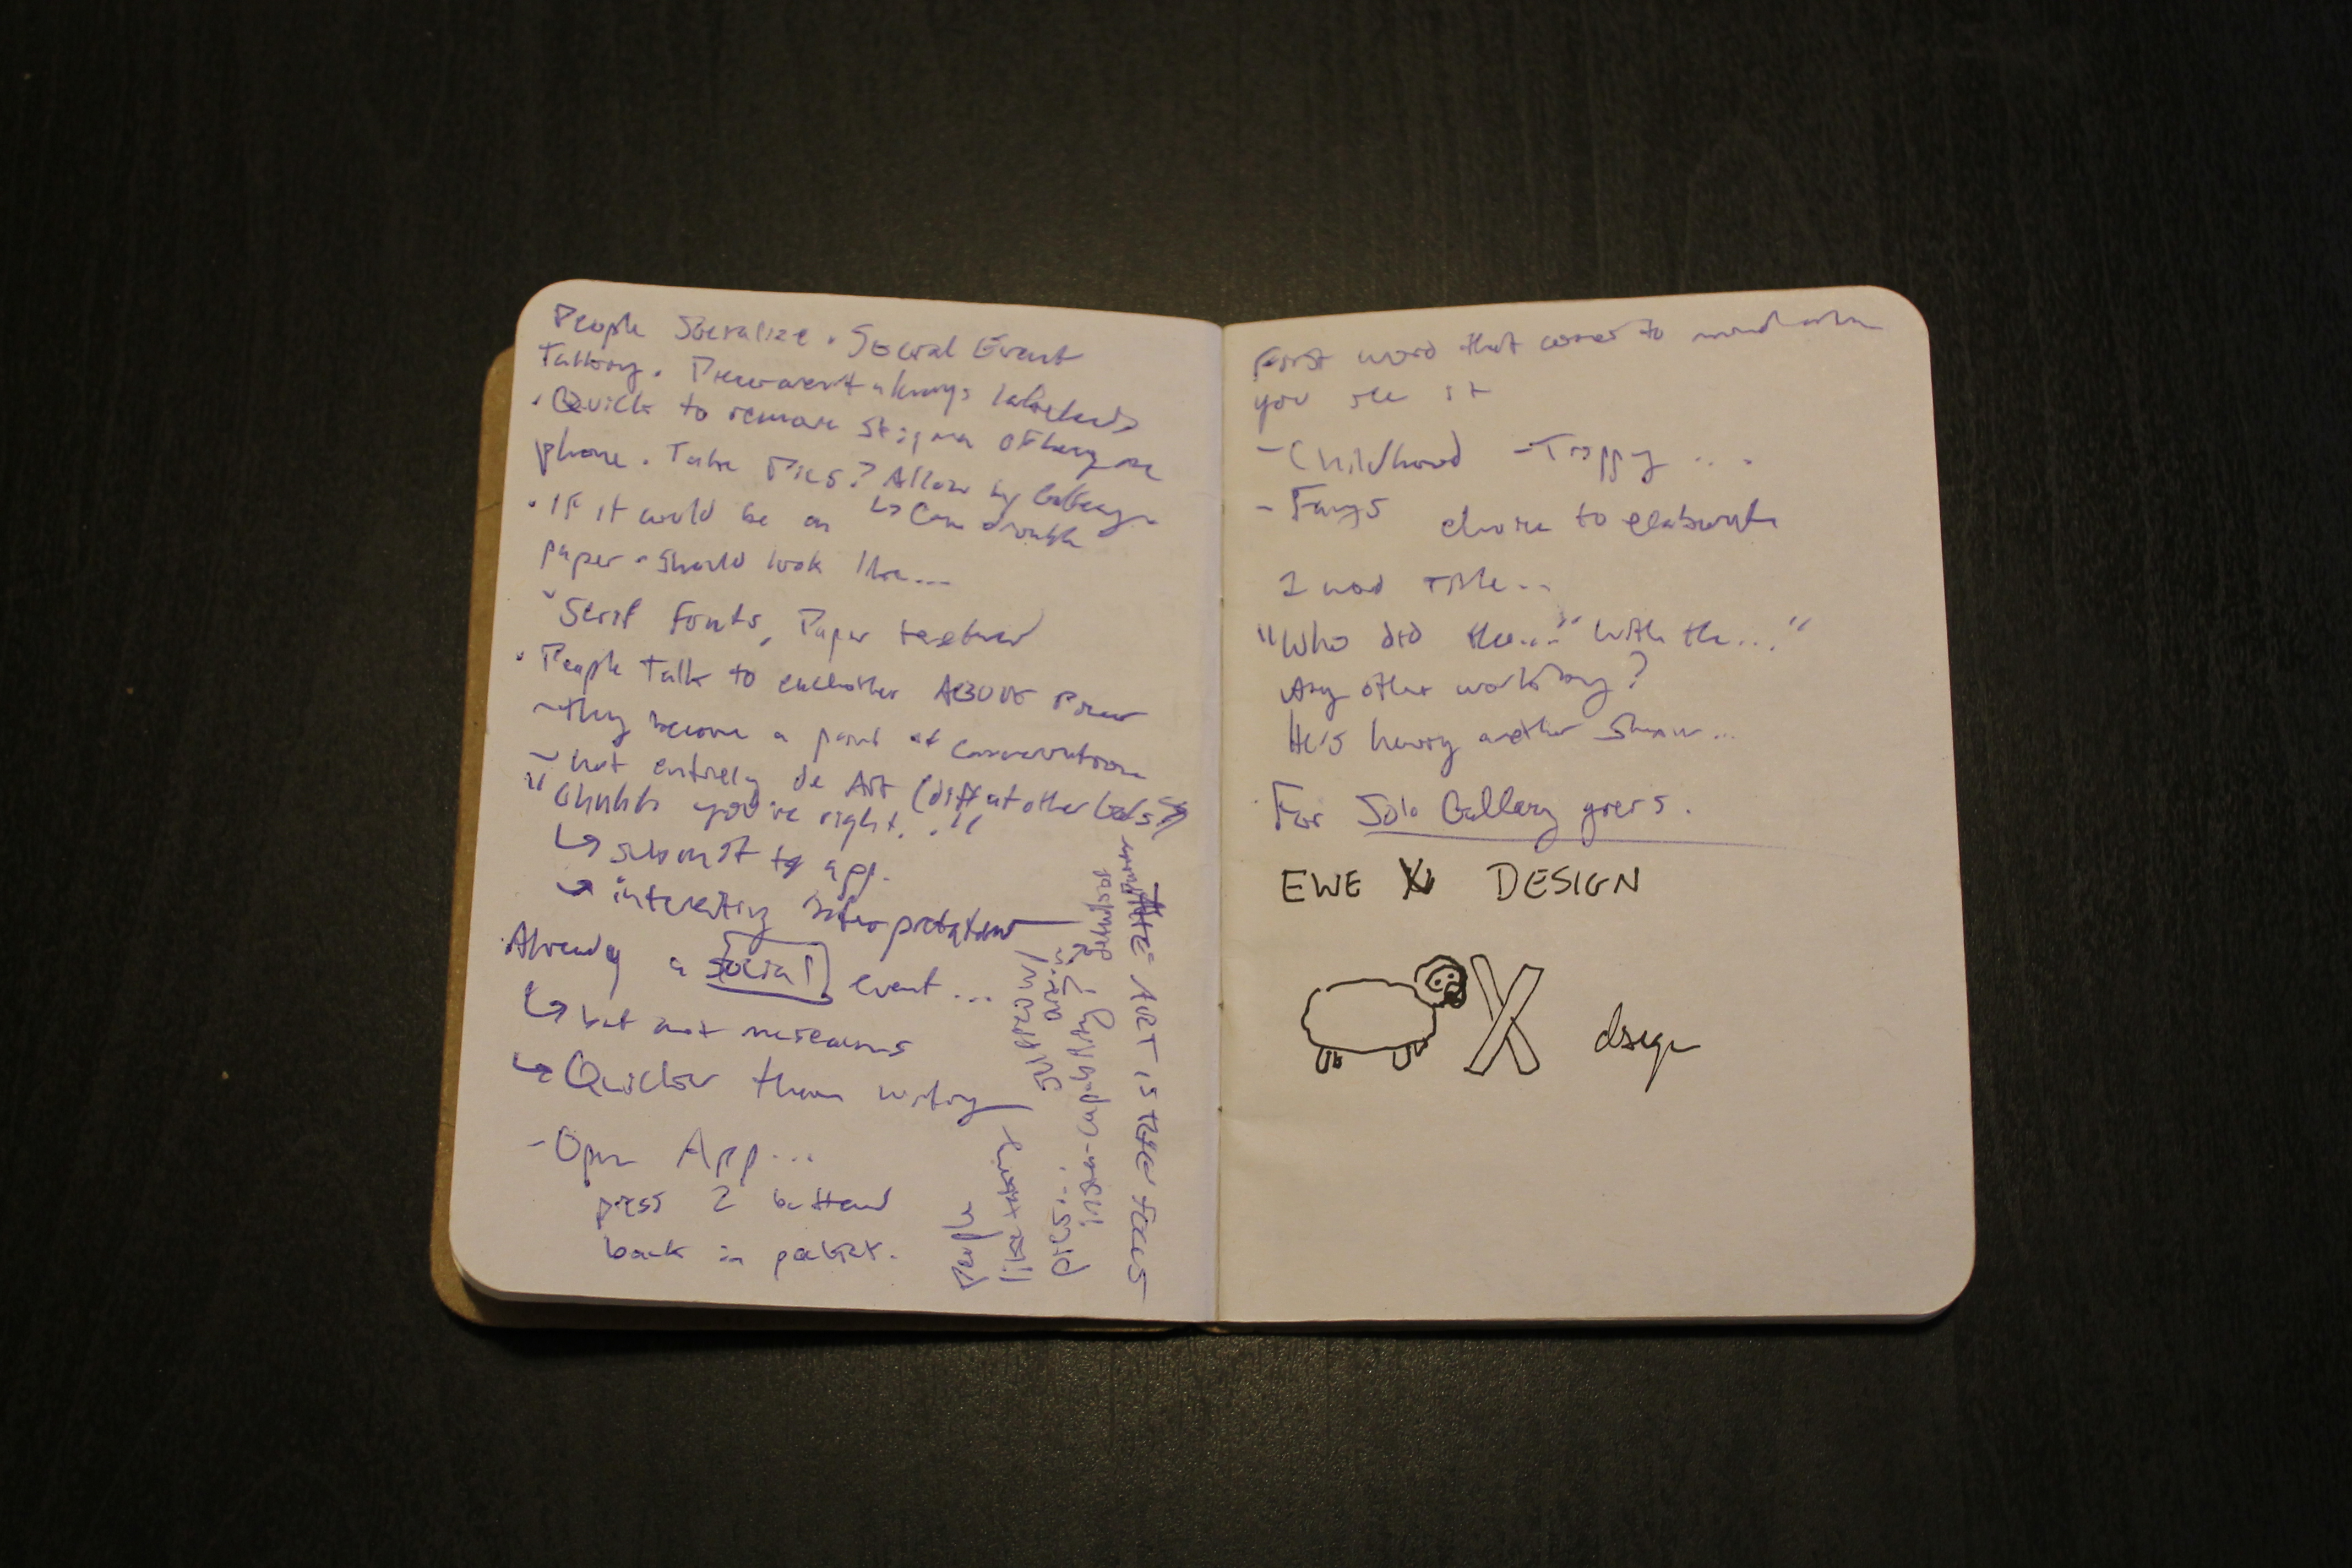 People Socialize. Social Event
Talking. Pieces aren't always
• Quick to remove stigma of being on
phone. Take Pics? Allow by Gallery
• If it would be on
paper. should look like...
Serif Fonts, Paper textured
• People Talk to eachother ABOVE
they become a point of conversation
not entirely de Art (diff at other
"Ohhhh you're right. . "
↳ submit to app.
→ interesting interpretation
Already a social event...
↳ but not museums
↳ Quicker than writing
- Open App...
press 2 buttons
back in pocket.
People
like taking
pics...
support w/
insta-capability?
THE ART IS THE FOCUS
First word that comes to mind when
you see it
- Childhood - Trippy ...
- Fangs
choice to elaborate
1 word title...
"Who did the..." "With the..."
Any other works by?
He's having another show...
For Solo Gallery goers.
EWE X DESIGN
X